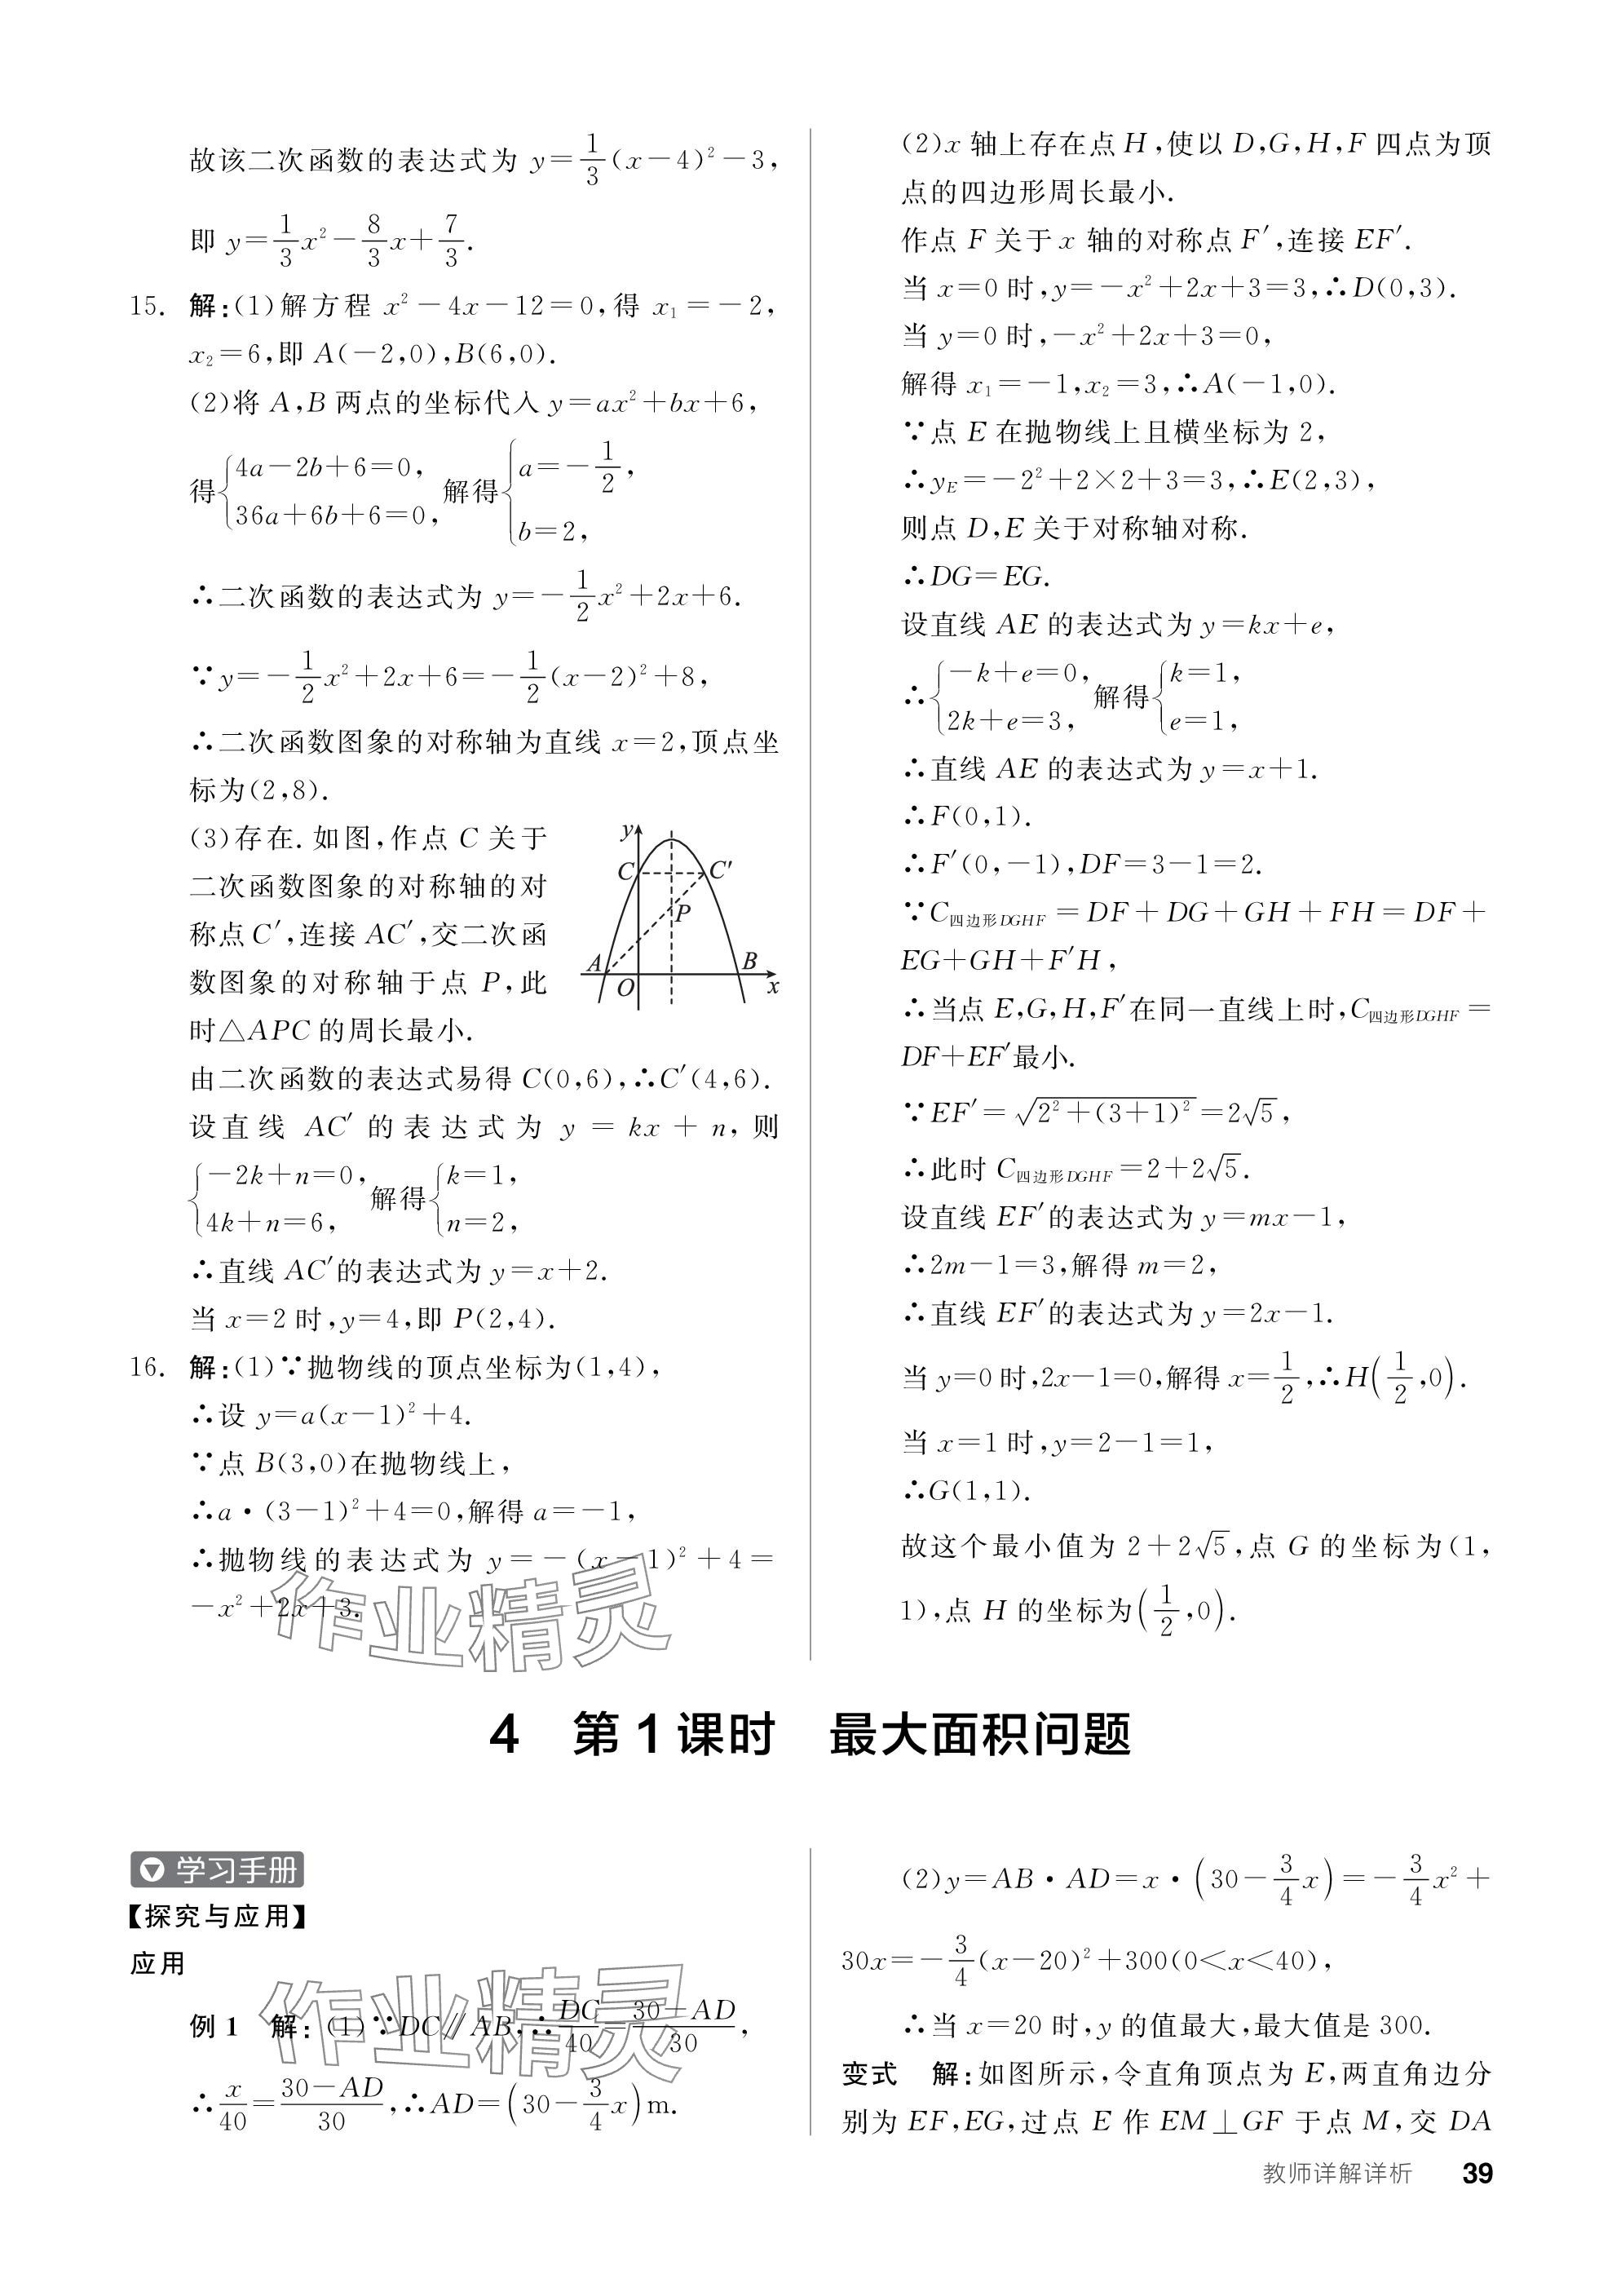 故该二次函数的表达式为 y=1/3(x-4)²-3,
即 y=1/3x²-8/3x+7/3.
15. 解:(1)解方程 x²-4x-12=0,得 x₁=-2,
x₂=6,即 A(-2,0),B(6,0).
(2)将 A,B 两点的坐标代入 y=ax²+bx+6,
得{4a-2b+6=0, 36a+6b+6=0, 解得{a=-1/2, b=2,
∴二次函数的表达式为 y=-1/2x²+2x+6.
∵y=-1/2x²+2x+6=-1/2(x-2)²+8,
∴二次函数图象的对称轴为直线 x=2,顶点坐
标为(2,8).
(3)存在. 如图,作点 C 关于
二次函数图象的对称轴的对
称点C′,连接 AC′,交二次函
数图象的对称轴于点 P,此
时△APC 的周长最小.
y
C
C′
P
A
B
O
x
由二次函数的表达式易得 C(0,6),∴C′(4,6).
设直线 AC′ 的表达式为 y=kx+n,则
{-2k+n=0, 4k+n=6, 解得{k=1, n=2,
∴直线 AC′的表达式为 y=x+2.
当 x=2 时,y=4,即 P(2,4).
16. 解:(1)∵抛物线的顶点坐标为(1,4),
∴设 y=a(x-1)²+4.
∵点 B(3,0)在抛物线上,
∴a·(3-1)²+4=0,解得 a=-1,
∴抛物线的表达式为 y=-(x-1)²+4=
-x²+2x+3.
作业精灵
(2)x 轴上存在点 H,使以 D,G,H,F 四点为顶
点的四边形周长最小.
作点 F 关于 x 轴的对称点 F′,连接 EF′.
当 x=0 时,y=-x²+2x+3=3,∴D(0,3).
当 y=0 时,-x²+2x+3=0,
解得 x₁=-1,x₂=3,∴A(-1,0).
∵点 E 在抛物线上且横坐标为 2,
∴y_E=-2²+2×2+3=3,∴E(2,3),
则点 D,E 关于对称轴对称.
∴DG=EG.
设直线 AE 的表达式为 y=kx+e,
∴{-k+e=0, 2k+e=3, 解得{k=1, e=1,
∴直线 AE 的表达式为 y=x+1.
∴F(0,1).
∴F′(0,-1),DF=3-1=2.
∵C四边形DGHF=DF+DG+GH+FH=DF+
EG+GH+F′H,
∴当点 E,G,H,F′在同一直线上时,C四边形DGHF=
DF+EF′最小.
∵EF′=√(2²+(3+1)²)=2√5,
∴此时 C四边形DGHF=2+2√5.
设直线 EF′的表达式为 y=mx-1,
∴2m-1=3,解得 m=2,
∴直线 EF′的表达式为 y=2x-1.
当 y=0 时,2x-1=0,解得 x=1/2,∴H(1/2,0).
当 x=1 时,y=2-1=1,
∴G(1,1).
故这个最小值为 2+2√5,点 G 的坐标为(1,
1),点 H 的坐标为(1/2,0).
4 第1课时 最大面积问题
学习手册
【探究与应用】
应用
例1 解:(1)∵DC∥AB,∴DC/40=30-AD/30,
∴x/40=30-AD/30,∴AD=(30-3/4x)m.
作业精灵
(2)y=AB·AD=x·(30-3/4x)=-3/4x²+
30x=-3/4(x-20)²+300(0<x<40),
∴当 x=20 时,y 的值最大,最大值是 300.
变式 解:如图所示,令直角顶点为 E,两直角边分
别为 EF,EG,过点 E 作 EM⊥GF 于点 M,交 DA
教师详解详析 39